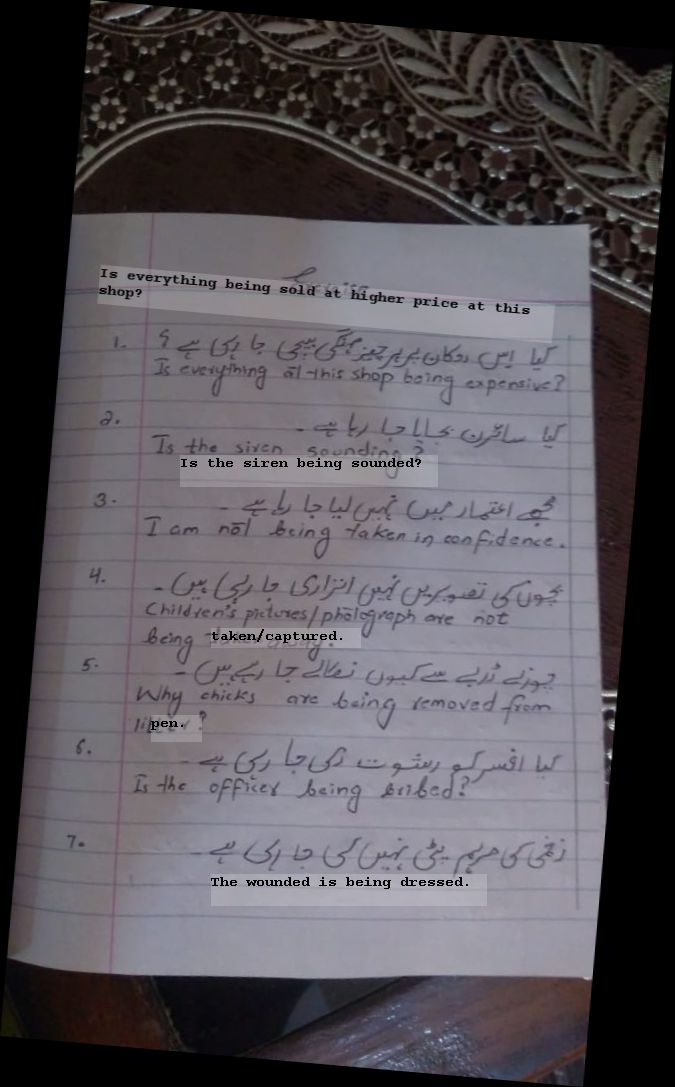 Is everything being sold at higher price at this
shop?
1. کیا اس دوکان پر ہر چیز مہنگی بیچی جا رہی ہے ؟
Is everything at this shop being expensive?
2. کیا سائرن بجایا جا رہا ہے۔
Is the siren sounding?
Is the siren being sounded?
3. مجھے اعتماد میں نہیں لیا جا رہا ہے۔
I am not being taken in confidence.
4. بچوں کی تصویریں نہیں اتاری جا رہی ہیں۔
Children's pictures/photograph are not
being taken/captured.
5. چوزے ڈربے سے کیوں نکالے جا رہے ہیں۔
Why chicks are being removed from
pen.
6. کیا افسر کو رشوت دی جا رہی ہے۔
Is the officer being bribed?
7. زخمی کی مرہم پٹی نہیں کی جا رہی ہے۔
The wounded is being dressed.